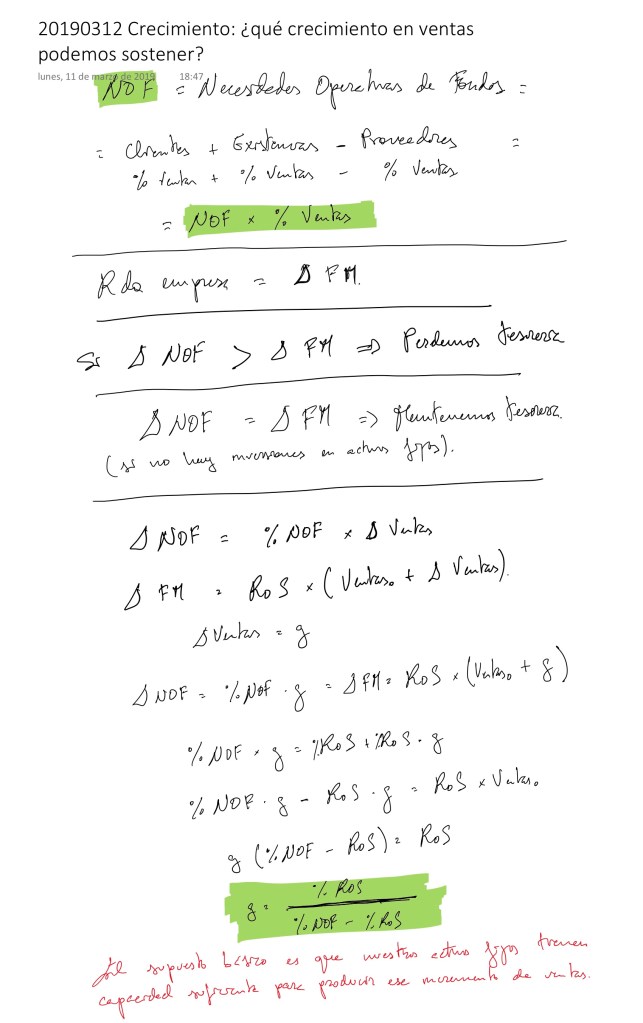 20190312 Crecimiento: ¿qué crecimiento en ventas
podemos sostener?
lunes, 11 de marzo de 2019 18:47
NOF = Necesidades Operativas de Fondos =
= Clientes + Existencias - Proveedores =
% Ventas + % Ventas - % Ventas
= NOF × % Ventas
Rdo empresa = Δ FM.
Si Δ NOF > Δ FM => Perdemos tesorería
Δ NOF = Δ FM => Mantenemos tesorería.
(si no hay inversiones en activos fijos).
Δ NOF = % NOF × Δ Ventas
Δ FM = RoS × (Ventas₀ + Δ Ventas).
Δ Ventas = g
Δ NOF = % NOF · g = Δ FM = RoS × (Ventas₀ + g)
% NOF × g = % RoS + % RoS · g
% NOF · g - RoS · g = RoS × Ventas₀
g (% NOF - RoS) = RoS
g = % RoS
% NOF - % RoS
El supuesto básico es que nuestros activos fijos tienen
capacidad suficiente para producir ese incremento de ventas.